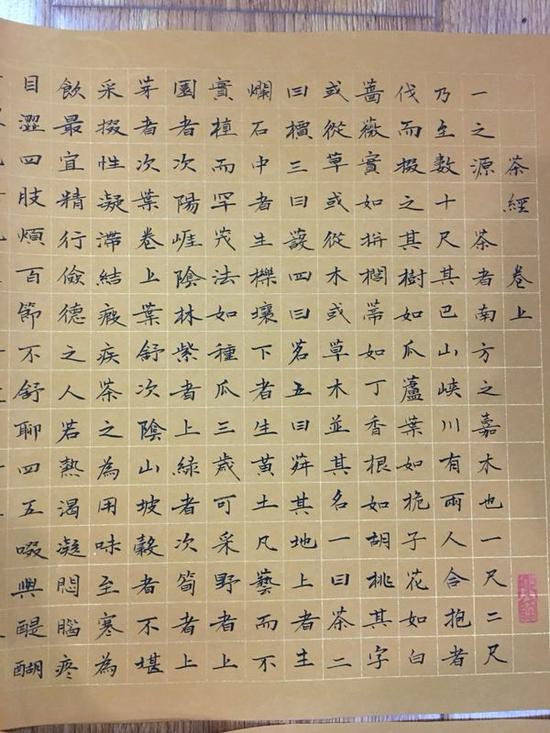 茶經 卷上
一之源茶者南方之嘉木也一尺二尺
乃至數十尺其巴山峽川有兩人合抱者
伐而掇之其樹如瓜蘆葉如梔子花如白
薔薇實如栟櫚蒂如丁香根如胡桃其字
或從草或從木或草木並其名一曰茶二
曰檟三曰蔎四曰茗五曰荈其地上者生
爛石中者生櫟壤下者生黄土凡藝而不
實植而罕茂法如種瓜三歲可采野者上
園者次陽崕陰林紫者上綠者次筍者上
芽者次葉卷上葉舒次陰山坡穀者不堪
采掇性凝滯結瘕疾茶之為用味至寒為
飲最宜精行儉德之人若熱渴凝悶腦疼
目澀四肢煩百節不舒聊四五啜與醍醐